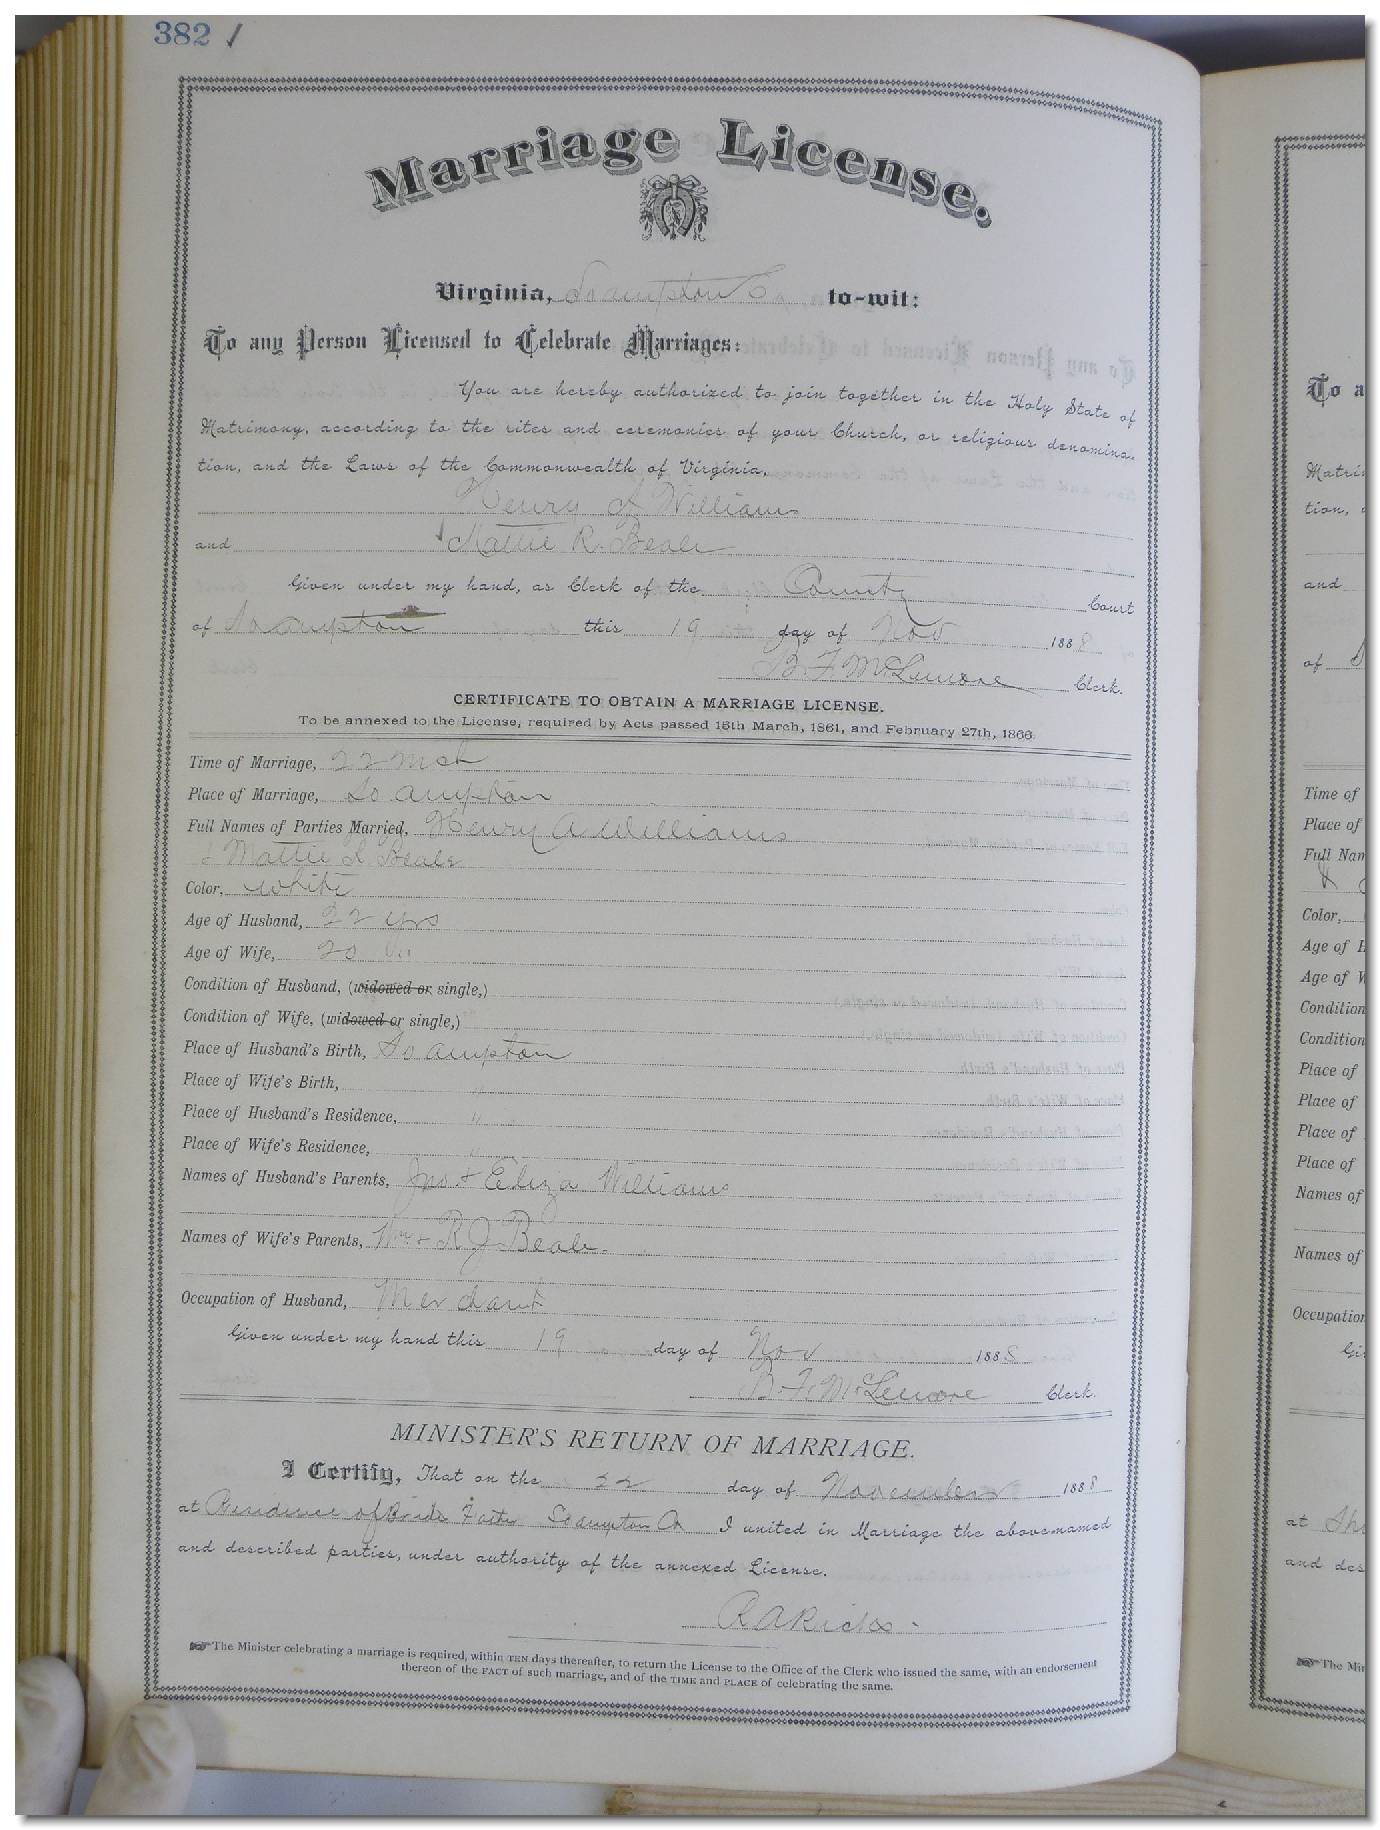 382 ✓
Marriage License.
Virginia, Soampton Co, to-wit:
To any Person Licensed to Celebrate Marriages:
You are hereby authorized to join together in the Holy State of
Matrimony, according to the rites and ceremonies of your Church, or religious denomina-
tion, and the Laws of the Commonwealth of Virginia,
Henry A Williams
and Mattie R. Beale
Given under my hand, as Clerk of the County Court
of Soampton this 19 day of Nov 1888
B. F. McLemore Clerk.
CERTIFICATE TO OBTAIN A MARRIAGE LICENSE.
To be annexed to the License, required by Acts passed 15th March, 1861, and February 27th, 1866.
Time of Marriage, 22 inst
Place of Marriage, So ampton
Full Names of Parties Married, Henry A Williams
& Mattie Beale
Color, white
Age of Husband, 22 yrs
Age of Wife, 20
Condition of Husband, (widowed or single,)
Condition of Wife, (widowed or single,)
Place of Husband's Birth, So ampton
Place of Wife's Birth, "
Place of Husband's Residence, "
Place of Wife's Residence, "
Names of Husband's Parents, Jno & Eliza Williams
Names of Wife's Parents, & R J Beale.
Occupation of Husband, Merchant
Given under my hand this 19 day of Nov 1888
B. F. McLemore Clerk.
MINISTER'S RETURN OF MARRIAGE.
I Certify, That on the 22 day of November 1888
at Residence of Bride Soampton Co I united in Marriage the above named
and described parties, under authority of the annexed License.
R A Ricks.
The Minister celebrating a marriage is required, within TEN days thereafter, to return the License to the Office of the Clerk who issued the same, with an endorsement
thereon of the FACT of such marriage, and of the TIME and PLACE of celebrating the same.
To a
Matri
tion,
and
of
Time of
Place of
Full Nam
&
Color,
Age of H
Age of W
Condition
Condition
Place of
Place of
Place of
Place of
Names of
Names of
Occupation
Gi
at
and des
The Min